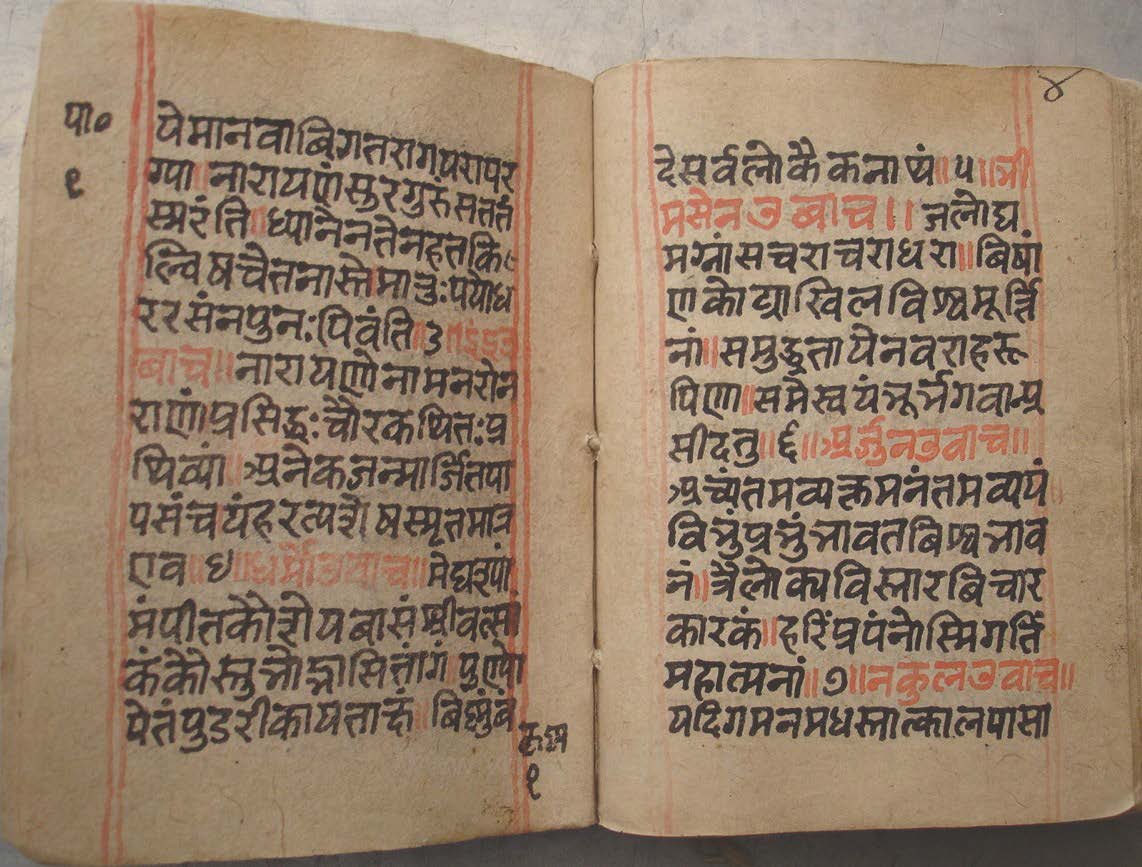 पा०
१
येमानवाबिगतरागपरापर
ग्पा॥नारायणंसुरगुरुसततं
स्मरंति॥ध्यानेनतेनहतकि
ल्विषचेतनास्तेमातुःपयोध
ररसंनपुनःपिवंति॥३॥इंद्रउ
बाच॥नारायणोनामनरोन
राणां॥प्रसिद्धःचौरकथितःप्र
थिव्यां॥अनेकजन्मार्जितपा
पसंचयंहरत्यशेषस्मृतमात्र
एव॥४॥धर्मोउवाच॥मेघश्पां
मंपीतकौशेयबासंश्रीवत्सां
कंकौस्तुभोद्भासितांगं॥पुण्पो
पेतंपुडरीकायताक्षं॥बिष्णुंबं
कृष्ण
१
४
देसर्वलोकैकनाथं॥५॥भी
मसेनउबाच॥जलोघ
मग्नांसचराचराधरा॥बिषां
णकोट्याखिलविश्वमूर्त्ति
नां॥समुद्धृतायेनवराहरू
पिणा॥समेस्वयंभूर्भगवान्प्र
सीदतु॥६॥अर्जुनउवाच॥
अच्यंतमव्यक्तमनंतमव्ययं
विभुंप्रभुंभावतबिश्वभाव
नं॥त्रैलोक्यविस्तारबिचार
कारकं॥हरिंप्रपंनोस्मिगतिं
महात्मनां॥७॥नकुलउवाच॥
यदिगमनमधस्तात्कालपासा